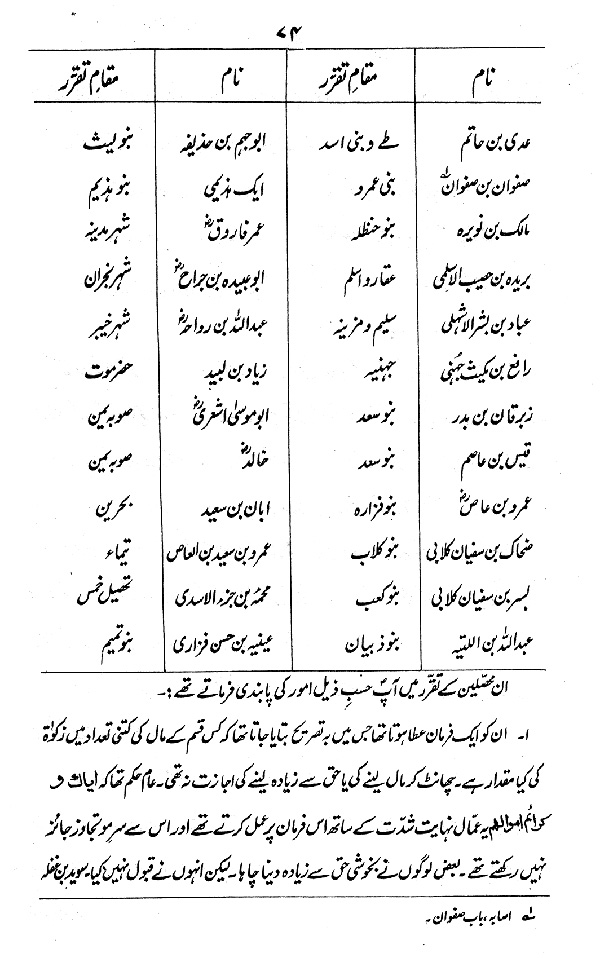 ۷۴
نام مقامِ تقرّر نام مقامِ تقرّر
عدی بن حاتم طے و بنی اسد ابوجہم بن حذیفہ بنو لیث
صفوان بن صفوان لہ بنی عمرو ایک ہذیمی بنو ہذیم
مالک بن نویرہ بنو حنظلہ عمر فاروقؓ شہر مدینہ
بریدہ بن حصیب الاسلمی غفار و اسلم ابو عبیدہ بن جراحؓ شہر نجران
عباد بن بشر الاشہلی سلیم و مزینہ عبداللہ بن رواحہؓ شہر خیبر
رافع بن مکیث جہنی جہنیہ زیاد بن لبید حضرموت
زبرقان بن بدر بنو سعد ابو موسیٰ اشعریؓ صوبہ یمن
قیس بن عاصم بنو سعد خالدؓ صوبہ یمن
عمرو بن عاصؓ بنو فزارہ ابان بن سعید بحرین
ضحاک بن سفیان کلابی بنو کلاب عمرو بن سعید بن العاص تیماء
بسر بن سفیان کلابی بنو کعب محمیہ بن جزء الاسدی تحصیل خمس
عبداللہ بن اللتیہ بنو ذبیان عینیہ بن حسن فزاری بنو تمیم
ان محصلین کے تقرر میں آپؐ حسبِ ذیل امور کی پابندی فرماتے تھے :۔
۱۔ ان کو ایک فرمان عطا ہوتا تھا جس میں بہ تصریح بتایا جاتا تھا کہ کس قسم کے مال کی کتنی تعداد میں زکوٰۃ
کی کیا مقدار ہے۔ چھانٹ کر مال لینے کی یا حق سے زیادہ لینے کی اجازت نہ تھی۔ عام حکم تھا کہ ایاك و
کرائم اموالهم یہ عمّال نہایت شدّت کے ساتھ اس فرمان پر عمل کرتے تھے اور اس سے سرِ مو تجاوز جائز
نہیں رکھتے تھے۔ بعض لوگوں نے بخوشی حق سے زیادہ دینا چاہا۔ لیکن انہوں نے قبول نہیں کیا۔ سوید بن غفلہ
لہ اصابہ، باب صفوان۔